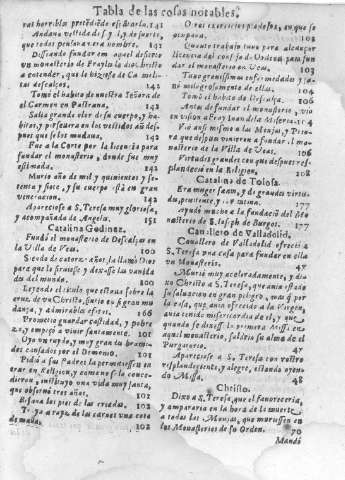 Tabla de las cosas notables.
rar horribles pretēdiēdo estorbarlo. 141
Andana vestida de f y
que todos pensavan era hombre. 141
Desseando fundar en aquel desierto
un monasterio de Frayles la dixo
a entender, que le hiziesse de Ca melitas
descalços. 142
Tomó el habito de nuestra Señora de
el Carmen en Pastrana. 142
Salia grande olor de su cuerpo, y ha
bitos, y persevera en los vestidos añ des
pues que se los mudava. 142
Fue a la Corte por la licencia para
fundar el monasterio, donde fue muy
estimada. 142
Murio año de mil y quinientos y se
tenta y siete, y su cuerpo está en gran
veneracion. 142
Apareciose a S. Teresa muy gloriosa,
y acompañada de Angeles. 151
Catalina Godinez.
Fundó el monasterio de Descalças en
la Villa de Veas. 100
Siendo de catorze años, la llamó Dios
para que le sirviesse y dexasse las vanida
des del mundo. 100
Leyendo el titulo que estava sobre la
cruz de un Christo, sintio en si gran mu
dança, y admirables efetos. 166
Prometio guardar castidad, y pobre
za, y empeçó a vivir santamente. 101
Oyo un ruydo, y muy gran bramido
des causados por el demonio. 101
Pidió a sus Padres la permitiessen en
trar en Religion, y como no se lo conce
dieron, instituyo una vida muy santa,
que observó tres años. 101
Besava los pies de las criadas. 101
Traya a rayz de las carnes una cota
de malla. 102
Otros exercicios piadosos, en que se
103
Quanto trabajo tuvo para alcançar
licencia del consejo de Ordenes, para fun
dar el monasterio en Veas. 103
Tuvo gravissimas enfermedades y sanó
milagrosamente de ella. 104
Tomó el habito de Descalça. 106
Antes de fundar el monasterio, vio
en vision a Fray Iuan de la Miseria. 104
Vio assi mismo a las Monjas, y Priora
que despues vinieron a fundar el mo
nasterio de la Villa de Veas. 106
Virtudes grandes con que despues res
plandecia en la Religion. 108
Catalina de Tolosa.
Era muger santa, y de grandes virtu
des, prudente, y rica. 177
Ayudó mucho a la fundacion del Mo
nasterio de S. Ioseph de Burgos. 177
Cavallero de Valladolid.
Cavallero de Valladolid ofreció a
S. Teresa una casa para fundar en ella
un Monasterio. 47
Murió muy aceleradamente, y di
xo Christo a S. Teresa, que avia estado
su salvacion en gran peligro, mas q̃ por
la casa, que avia ofrecido a la Virgen,
avia tenido misericordia de el, y que
quando se dixesse la primera Missa en
aquel monasterio, saldria su alma de el
Purgatorio. 47
Apareciose a S. Teresa con rostro
resplandeciente, y alegre, estando oyen
do Missa. 48
Christo.
Dixo a S. Teresa, que favoreceria,
y ampararia en la hora de la muerte
a todas las Monjas, que muriessen en
los Monasterios de su Orden. 70
Mandó